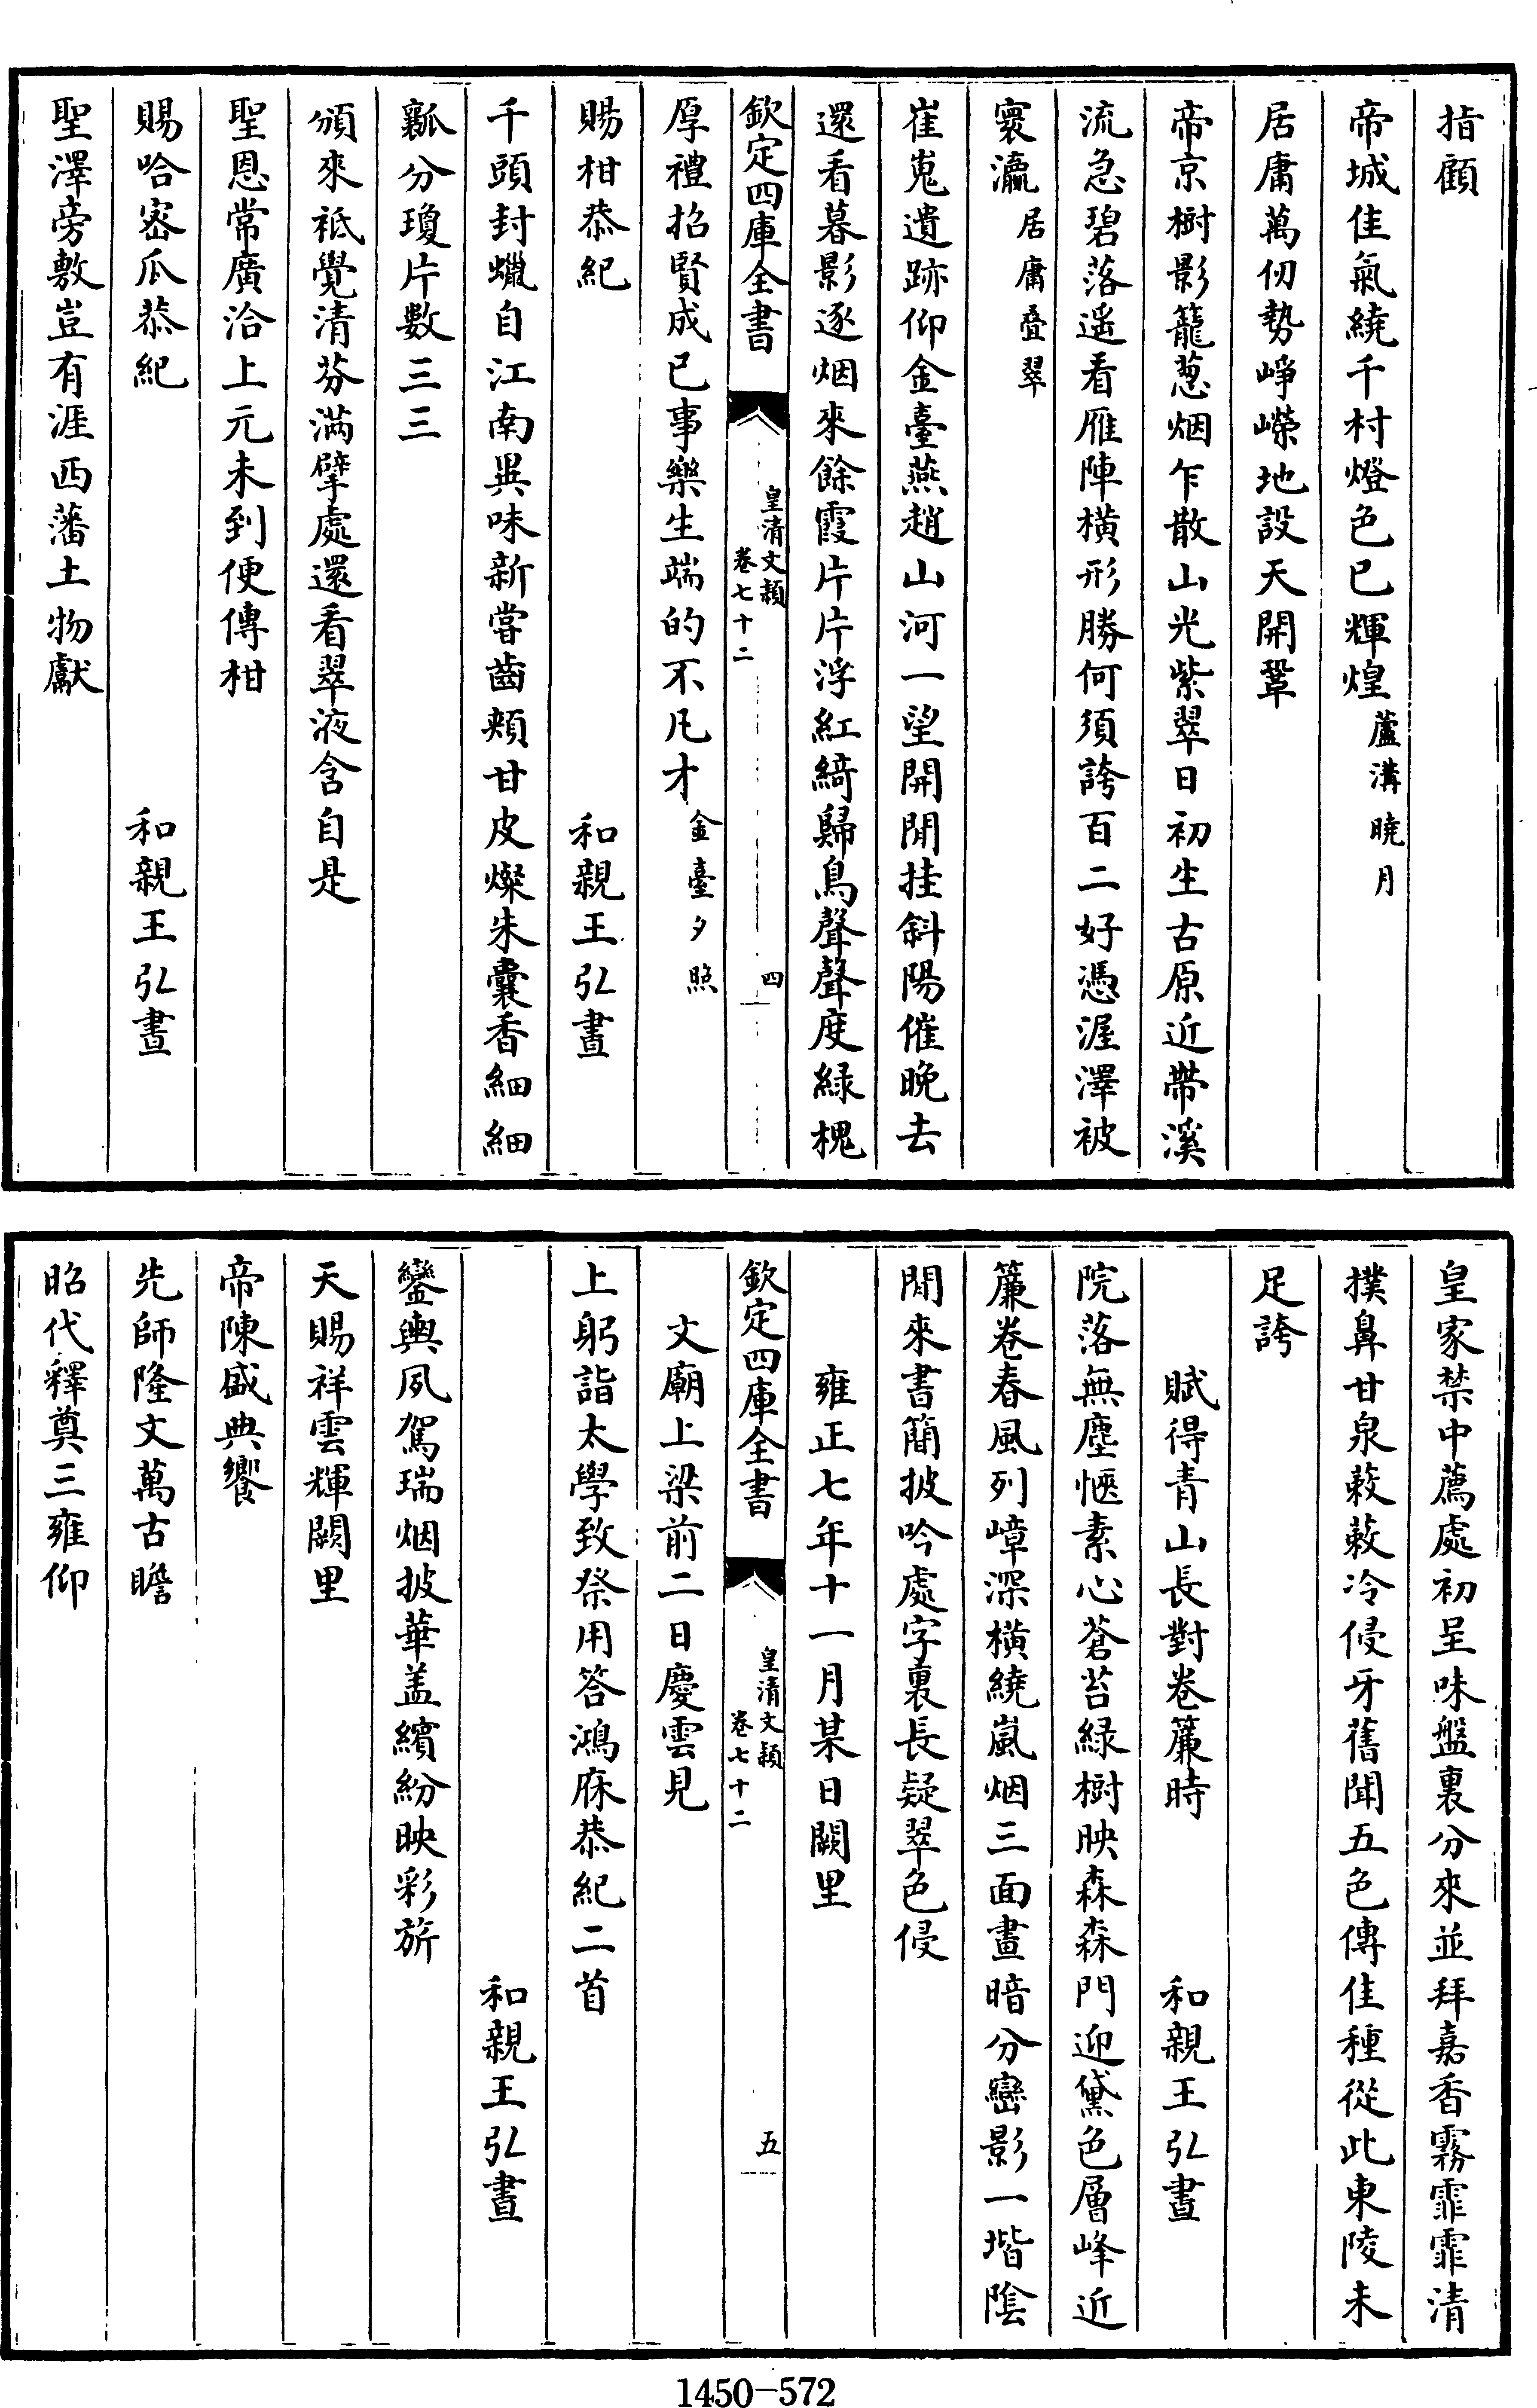 指顧
帝城佳氣繞千村燈色已輝煌蘆溝曉月
居庸萬仞勢崢嶸地設天開鞏
帝京樹影籠蔥烟乍散山光紫翠日初生古原近帶溪
流急碧落遥看雁陣横形勝何須誇百二好憑渥澤被
寰瀛居庸疊翠
崔嵬遺跡仰金臺燕趙山河一望開閒挂斜陽催晚去
還看暮影逐烟來餘霞片片浮紅綺歸鳥聲聲度緑槐
欽定四庫全書
皇清文穎
卷七十二
四
厚禮招賢成已事樂生端的不凡才金臺夕照
賜柑恭紀
和親王弘晝
千頭封蠟自江南異味新嘗齒頰甘皮燦朱囊香細細
瓤分瓊片數三三
頒來祗覺清芬滿擘處還看翠液含自是
聖恩常廣洽上元未到便傳柑
賜哈密瓜恭紀
和親王弘晝
聖澤旁敷豈有涯西藩土物獻
皇家禁中薦處初呈味盤裏分來並拜嘉香霧霏霏清
撲鼻甘泉蔌蔌冷侵牙舊聞五色傳佳種從此東陵未
足誇
賦得青山長對卷簾時
和親王弘晝
院落無塵愜素心蒼苔緑樹映森森門迎黛色層峰近
簾卷春風列嶂深横繞嵐烟三面畫暗分巒影一堦陰
閒來書簡披吟處字裏長疑翠色侵
雍正七年十一月某日闕里
欽定四庫全書
皇清文穎
卷七十二
五
文廟上梁前二日慶雲見
上躬詣太學致祭用答鴻庥恭紀二首
和親王弘晝
鑾輿夙駕瑞烟披華盖繽紛映彩旂
天賜祥雲輝闕里
帝陳盛典饗
先師隆文萬古瞻
昭代釋奠三雍仰
1450-572